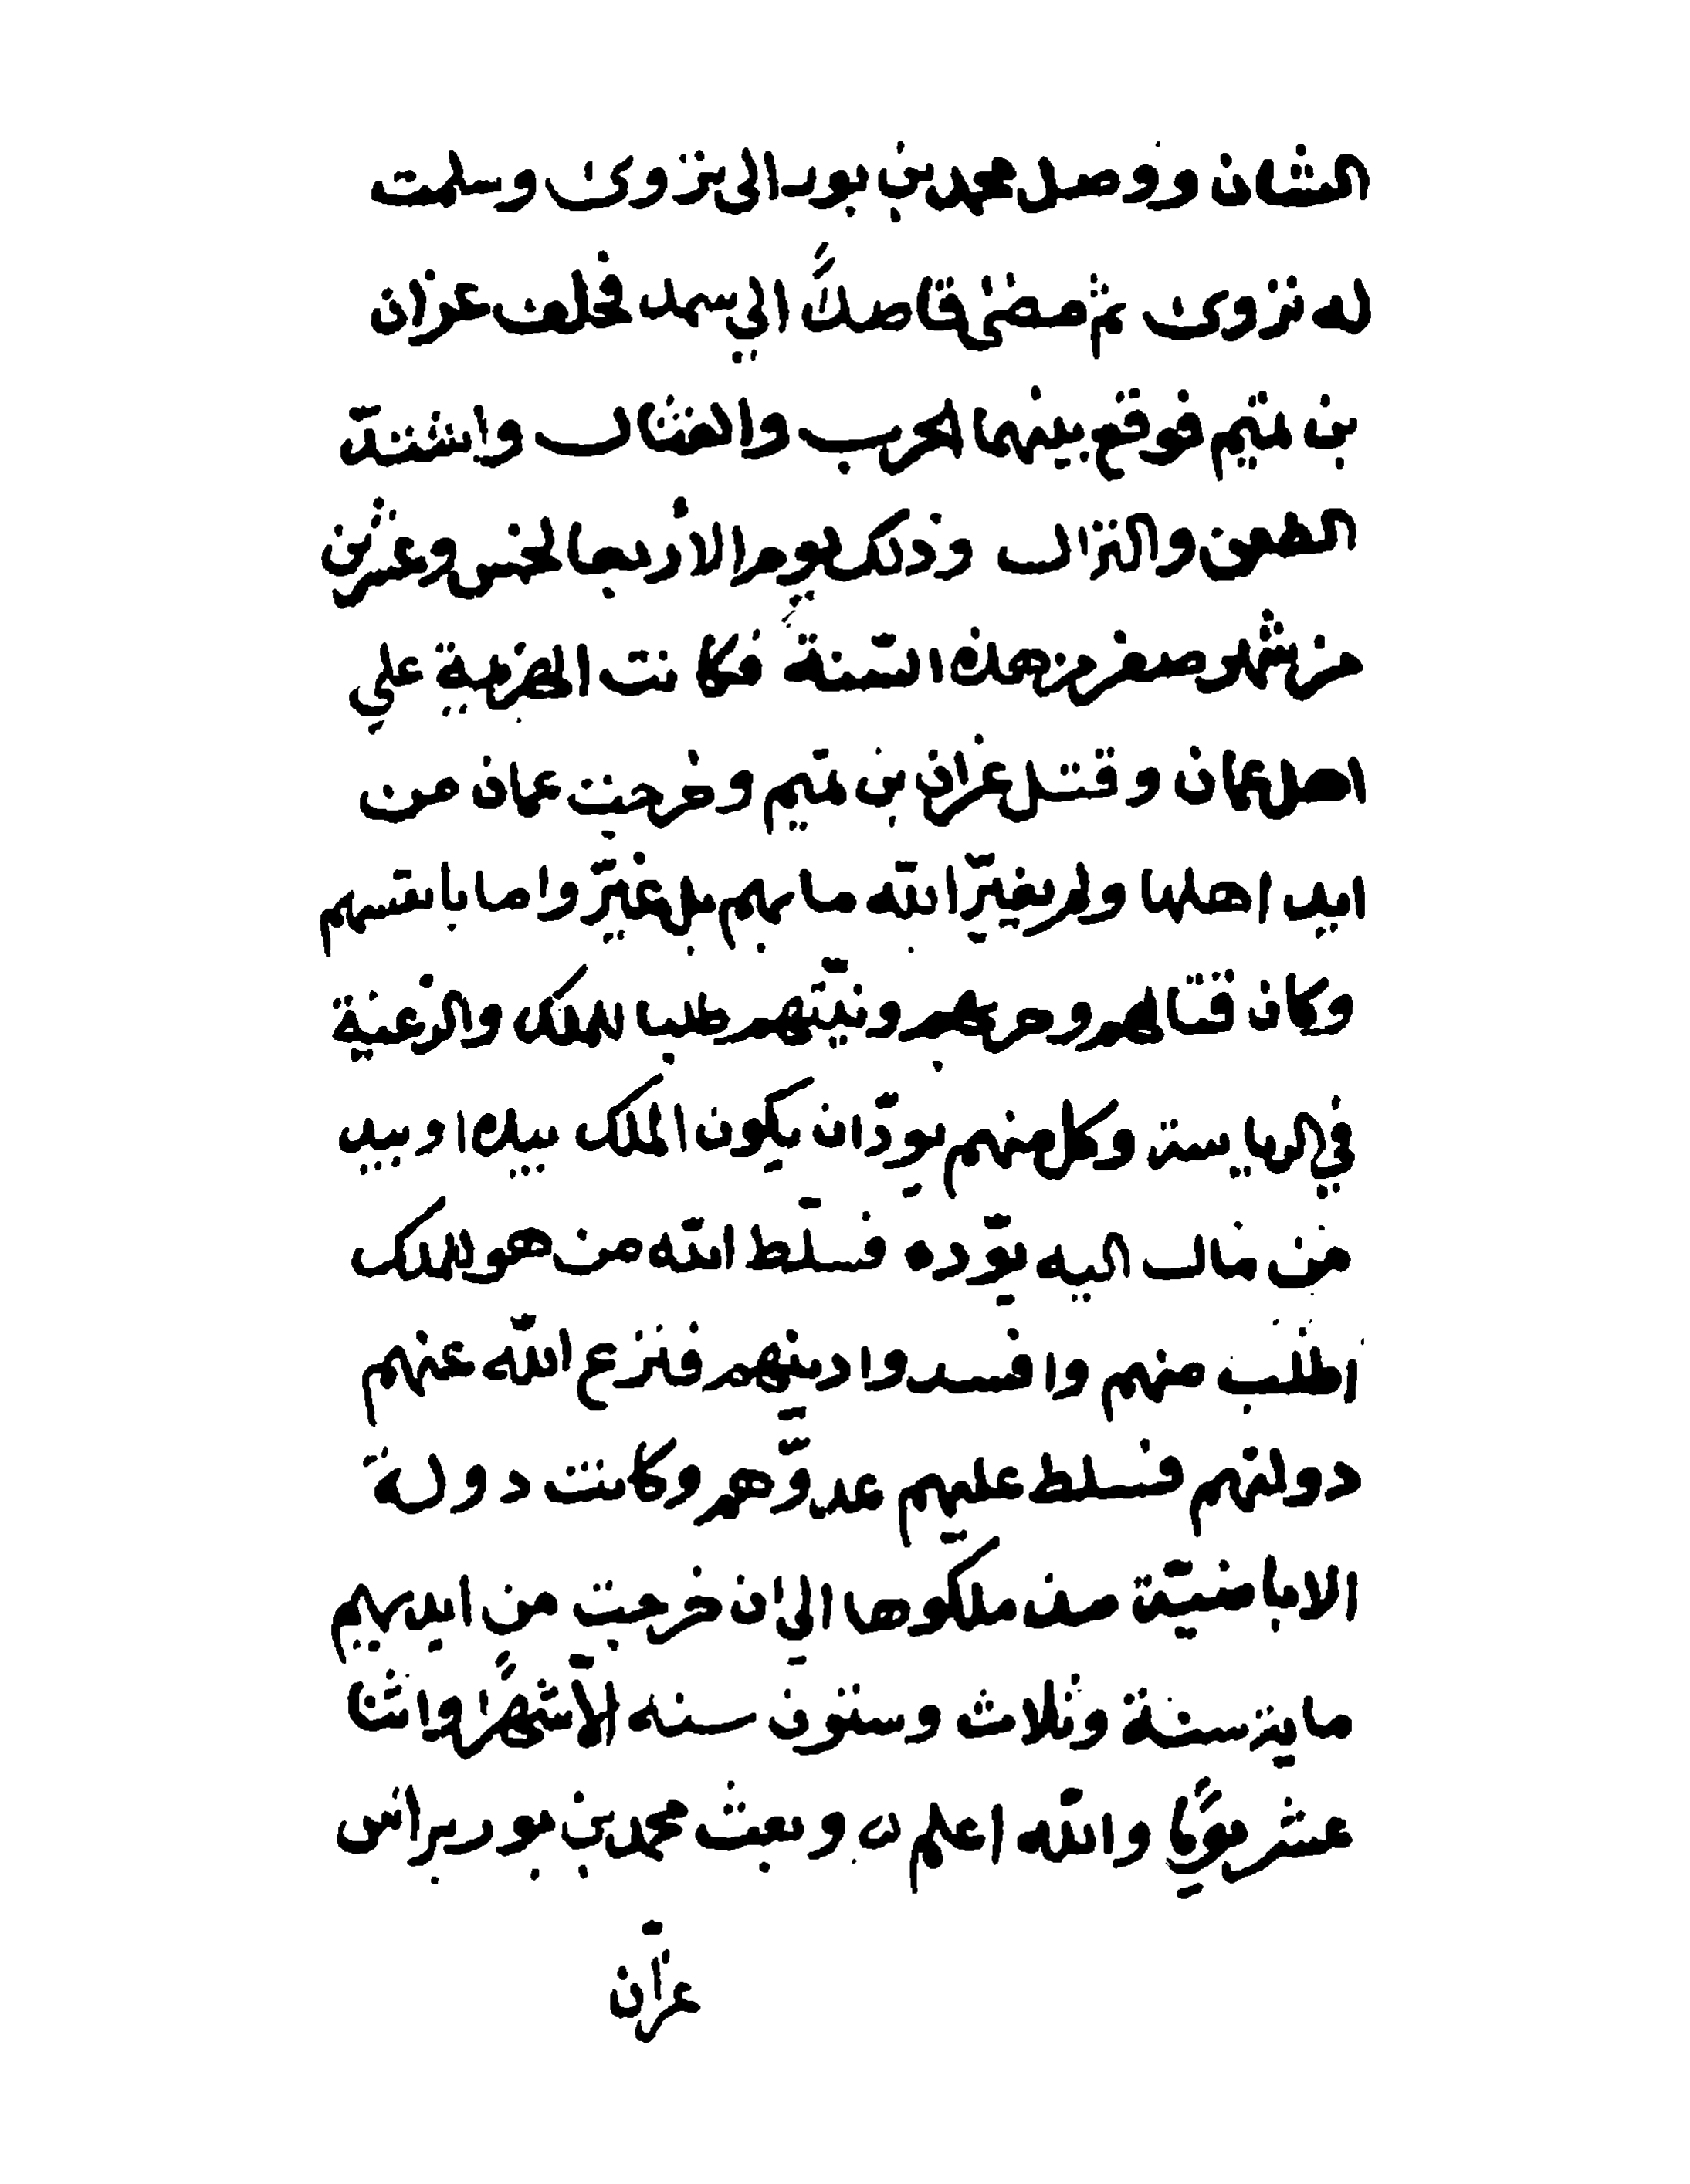 الشان ووصل محمد بن بور الى نزوى وسلمت
له نزوى ثم مضى قاصدًا الي سمد فخلف عزان
بن تميم فوقع بينهما الحرب والقتال واشتدّ
الطعن والنزال وذلك يوم الاربعا لخمس وعشرين
من شهر صفر من هذه السّنة فكانت الهزيمة علي
اهل عمان وقتل عزان بن تميم وخرجت عمان من
ايد اهلها ولم يغيّر الله ما بهم بل غيّروا ما بانفسهم
وكان قتالهم وحربهم ونيّتهم طلبا للملك والرغبة
في الرياسة وكل منهم يودّ ان يكون الملك بيده او بيد
من مال اليه يوّده فسلّط الله من هو للملك
اطلب منهم وافسدوا دينهم فنزع الله عنهم
دولتهم فسلط عليهم عدوّهم وكانت دولة
الاباضيّة منذ ملكوها الي ان خرجت من ايديهم
ماية سنة وثلاث وستون سنه الّا شهرًا واثنا
عشر يومًا والله اعلم ن وبعث محمد بن بور براس
عزّان